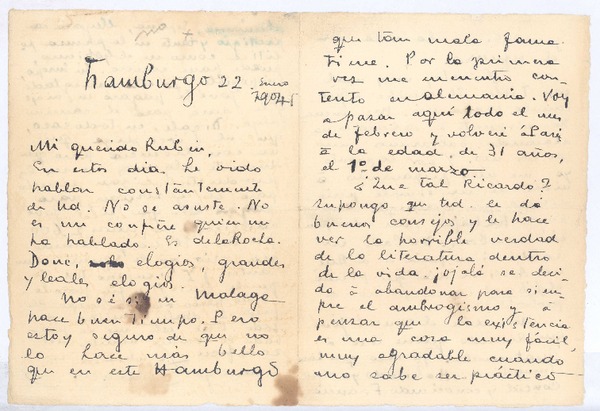 Hamburgo 22 Enero
1904
Mi querido Ruben,
En estos dias he oido
hablar constantemente
de Ud. No se asuste. No
es un confrère quien me
ha hablado. Es de la Rocha.
Donc, elogios, grandes
y leales elogios.
No sé si en Malaga
hace buen tiempo. Pero
estoy seguro de que no
lo hace más bello
que en este Hamburgo
que tan mala fama
tiene. Por la primera
vez me encuentro con-
tento en Alemania. Voy
a pasar aquí todo el mes
de febrero y volveré á Paris
á la edad de 31 años,
el 1º de marzo.
¿Que tal Ricardo?
Supongo que Ud. le dá
buenos consejos y le hace
ver la horrible verdad
de la literatura dentro
de la vida. ¡ojalá se deci-
da á abandonar para siem-
pre el ambrogismo y á
pensar que la existencia
es una cosa muy fácil
muy agradable cuando
uno sabe ser práctico